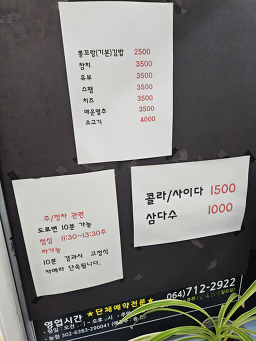 롱꼬랑(기본)김밥 2500
참치 3500
유부 3500
스팸 3500
치즈 3500
매운멸추 3500
소고기 4000
콜라/사이다 1500
삼다수 1000
주/정차 관련
도로변 10분 가능
점심 11:30~13:30주
차가능
10분 경과시 고정식
카메라 단속됩니다.
★단체예약전문★
(064)712-2922
영업시간
농협 302-6393-290041